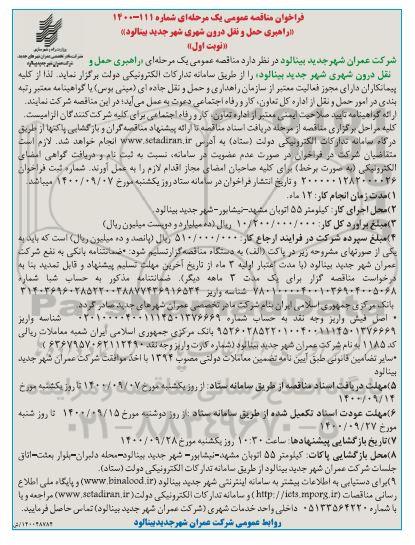 فراخوان مناقصه عمومی یک مرحله‌ای شماره ۱۱۱-۱۴۰۰
«راهبری حمل و نقل درون شهری شهر جدید بینالود»
«نوبت اول»
شرکت عمران شهرجدید بینالود در نظر دارد مناقصه عمومی یک مرحله‌ای «راهبری حمل و
نقل درون شهری شهر جدید بینالود» را از طریق سامانه تدارکات الکترونیکی دولت برگزار نماید. لذا از کلیه
پیمانکاران دارای مجوز فعالیت معتبر از سازمان راهداری و حمل و نقل جاده ای (مینی بوس) یا گواهینامه معتبر رتبه
بندی در امور حمل و نقل از اداره کل تعاون، کار و رفاه اجتماعی دعوت به عمل می‌آید؛ در این مناقصه شرکت نمایند.
ارائه گواهینامه تایید صلاحیت ایمنی معتبر از اداره تعاون، کار و رفاه اجتماعی برای کلیه شرکت‌کنندگان الزامیست.
کلیه مراحل برگزاری مناقصه از مرحله دریافت اسناد مناقصه تا ارائه پیشنهاد مناقصه‌گران و بازگشایی پاکتها از طریق
درگاه سامانه تدارکات الکترونیکی دولت (ستاد) به آدرس www.setadiran.ir انجام خواهد شد. لازم است
متقاضیان شرکت در فراخوان در صورت عدم عضویت در سامانه، نسبت به ثبت نام و دریافت گواهی امضای
الکترونیکی (به صورت برخط) برای کلیه صاحبان امضای مجاز اقدام لازم را به عمل آورند. شماره ثبت فراخوان
و تاریخ انتشار فراخوان در سامانه ستاد روز یکشنبه مورخ ۱۴۰۰/۰۹/۰۷ میباشد.
۱)مدت زمان انجام کار: ۱۲ ماه.
۲)محل اجرای کار: کیلومتر ۵۵ اتوبان مشهد-نیشابور-شهر جدید بینالود.
۳)مبلغ برآورد کل کار: ۱۰/۲۰۰/۰۰۰/۰۰۰ ریال (ده میلیارد و دویست میلیون ریال)
۴)مبلغ سپرده شرکت در فرایند ارجاع کار: ۵۱۰/۰۰۰/۰۰۰ ریال (پانصد و ده میلیون ریال) است که باید به
یکی از صورتهای مشروحه زیر در پاکت (الف) به دستگاه مناقصه‌گزار تسلیم شود: •ضمانتنامه بانکی به نفع شرکت
عمران شهر جدید بینالود (با مدت اعتبار اولیه ۳ ماه از تاریخ آخرین مهلت تسلیم پیشنهاد و قابل تمدید بنا به
درخواست مناقصه گزار برای یک مدت ۳ ماهه دیگر). ضمانتنامه مذکور به حساب شبا شماره
بانک مرکزی جمهوری اسلامی ایران بنام شرکت مادر تخصصی عمران شهرهای جدید صادر گردد.
• اصل فیش واریز وجه نقد به حساب شماره
بانک مرکزی جمهوری اسلامی ایران شعبه معاملات ریالی
کد ۱۱۸۵ به نام شرکت عمران شهر جدید بینالود
•سایر تضامین قانونی طبق آیین نامه تضمین معاملات دولتی مصوب ۱۳۹۴ با اخذ موافقت شرکت عمران شهر جدید
بینالود
۵)مهلت دریافت اسناد مناقصه از طریق سامانه ستاد: از روز یکشنبه مورخ ۱۴۰۰/۰۹/۰۷ تا روز یکشنبه مورخ
۱۴۰۰/۰۹/۱۴
۶)مهلت عودت اسناد تکمیل شده از طریق سامانه ستاد : از روز دوشنبه مورخ ۱۴۰۰/۰۹/۱۵ تا روز شنبه
مورخ ۱۴۰۰/۰۹/۲۷
۷)تاریخ بازگشایی پیشنهادها: ساعت ۱۰:۳۰ روز یکشنبه مورخ ۱۴۰۰/۰۹/۲۸
۸)محل بازگشایی پاکات: کیلومتر ۵۵ اتوبان مشهد-نیشابور- شهر جدید بینالود-محله دلبران-بلوار بعثت-اتاق
جلسات شرکت عمران شهر جدید بینالود از طریق سامانه تدارکات الکترونیکی دولت (ستاد).
۹)برای دستیابی به اطلاعات بیشتر به سامانه اینترنتی شهر جدید بینالود (www.binalood.ir) و پایگاه ملی اطلاع
رسانی مناقصات (http://iets.mporg.ir) و سامانه تدارکات الکترونیکی دولت (www.setadiran.ir) مراجعه و یا
با شماره ۰۵۱۳۳۵۶۴۲۲۰ داخلی واحد خدمات شهری (شرکت عمران شهر جدید بینالود) تماس حاصل فرمایید.
روابط عمومی شرکت عمران شهرجدیدبینالود